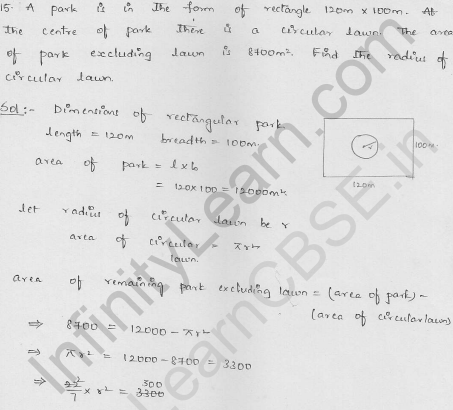 15. A park is in the form of rectangle 120m x 100m. At
the centre of park there is a circular lawn. The area
of park excluding lawn is 8700m². Find the radius of
circular lawn.
Sol:- Dimensions of rectangular park
length = 120m breadth = 100m.
area of park = l x b
= 120 x 100 = 12000m²
100m
r
120m
let radius of circular lawn be r
area of circular = πr²
lawn.
area of remaining park excluding lawn = (area of park) -
(area of circular lawn)
⇒ 8700 = 12000 - πr²
⇒ πr² = 12000 - 8700 = 3300
⇒ 22/7 x r² = 3300
300
InfinityLearn.com
LearnCBSE.in